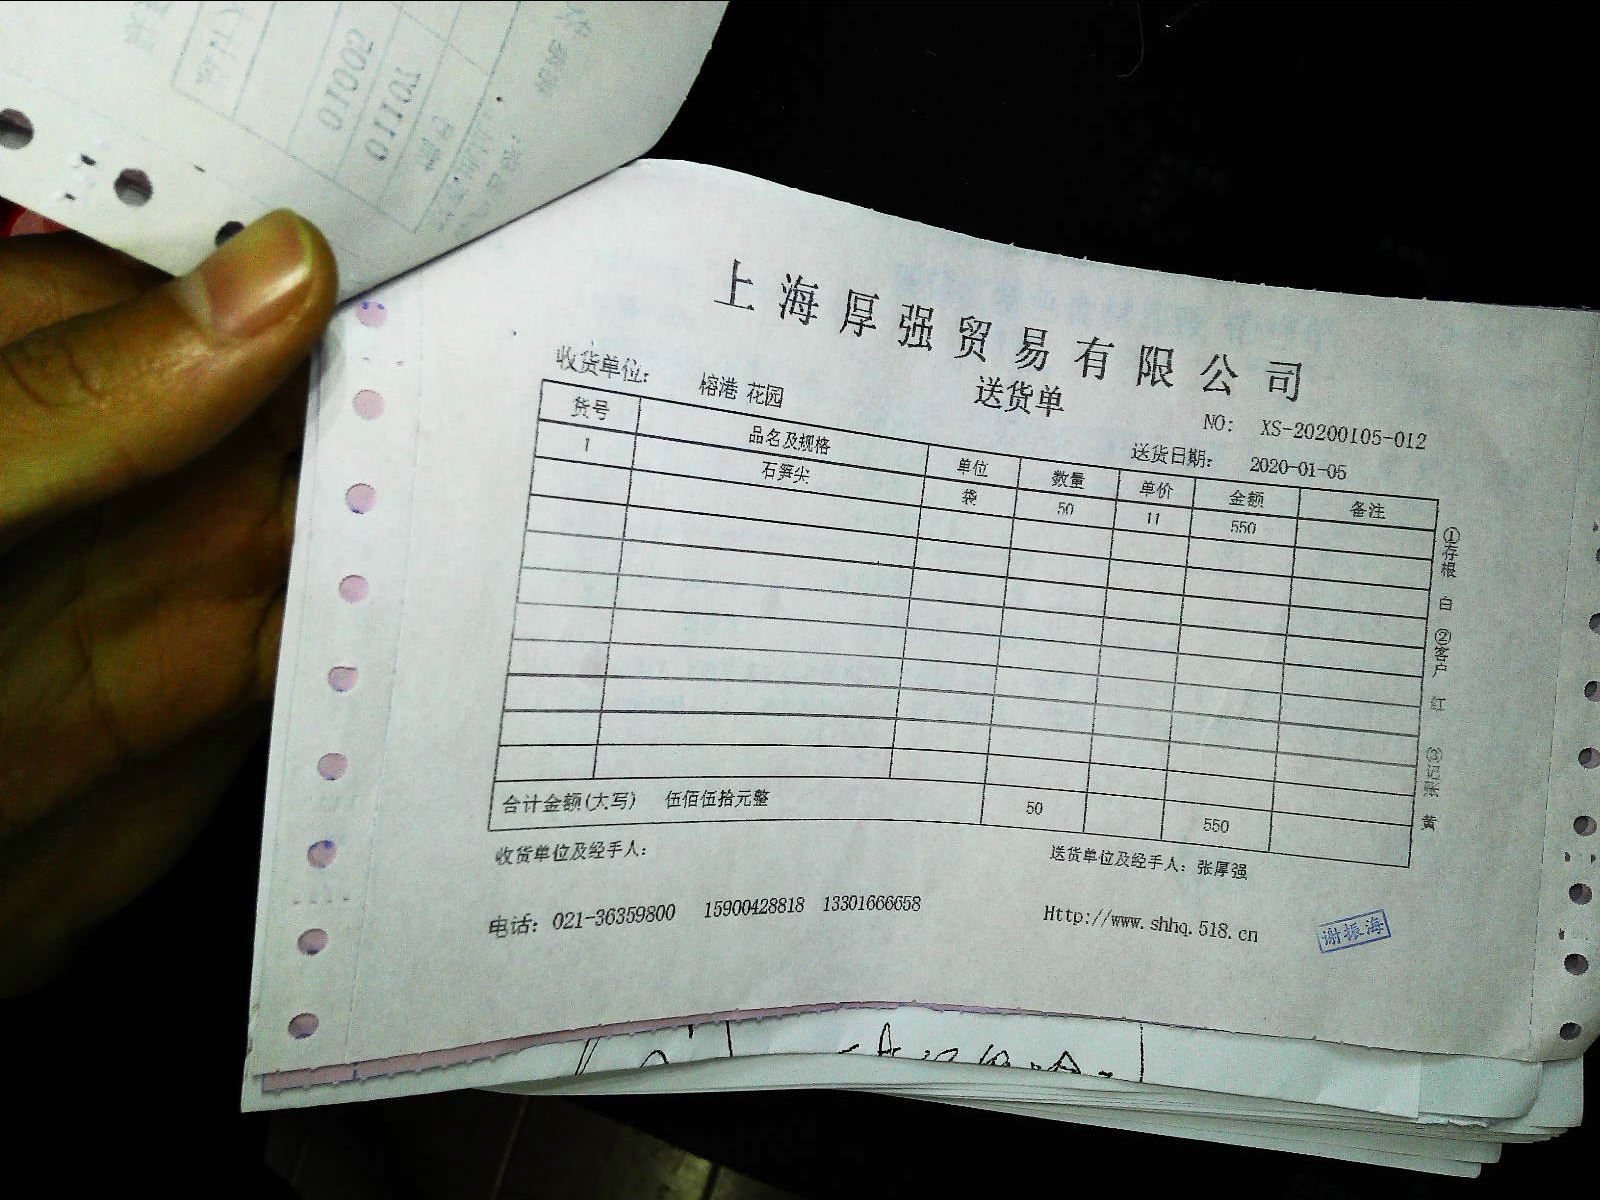 上海厚强贸易有限公司
送货单
收货单位： 榕港 花园
NO: XS-20200105-012
送货日期： 2020-01-05
货号 品名及规格 单位 数量 单价 金额 备注
1 石笋尖 袋 50 11 550
合计金额(大写) 伍佰伍拾元整 50 550
收货单位及经手人： 送货单位及经手人：张厚强
电话：021-36359800 15900428818 13301666658 Http://www.shhq.518.cn
谢振海
①存根 白 ②客户 红 ③ 黄